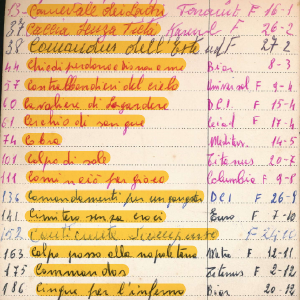 13 Carnevale dei Ladri F 16-1
37 Caccia Senza Pietà F 26-2
38 Comandim dell'Erba F 27 2
44 Chiedi perdono a Dio non a me Bior 8-3
57 Contrabbandieri del cielo Universal F 9-4
60 Cavaliere di Lagardere D.C.I. F 15-4
61 Cerchio di sangue F 17-4
74 Cobra Mediter. 14-5
101 Colpo di sole Titanus 20-7
111 Cominciò per gioco Columbia F 9-8
136 Comandamenti per un gangster D C I F 26-9
141 Cimitero senza croci Euro F 7-10
152 F 24 10
163 Colpo grosso alla napoletana Metro F 12-11
175 Commandos Titanus F 2-12
186 Cinque per l'inferno Bior 20-12